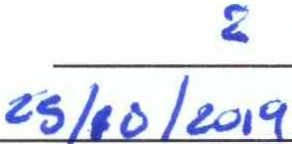 2
25/10/2019